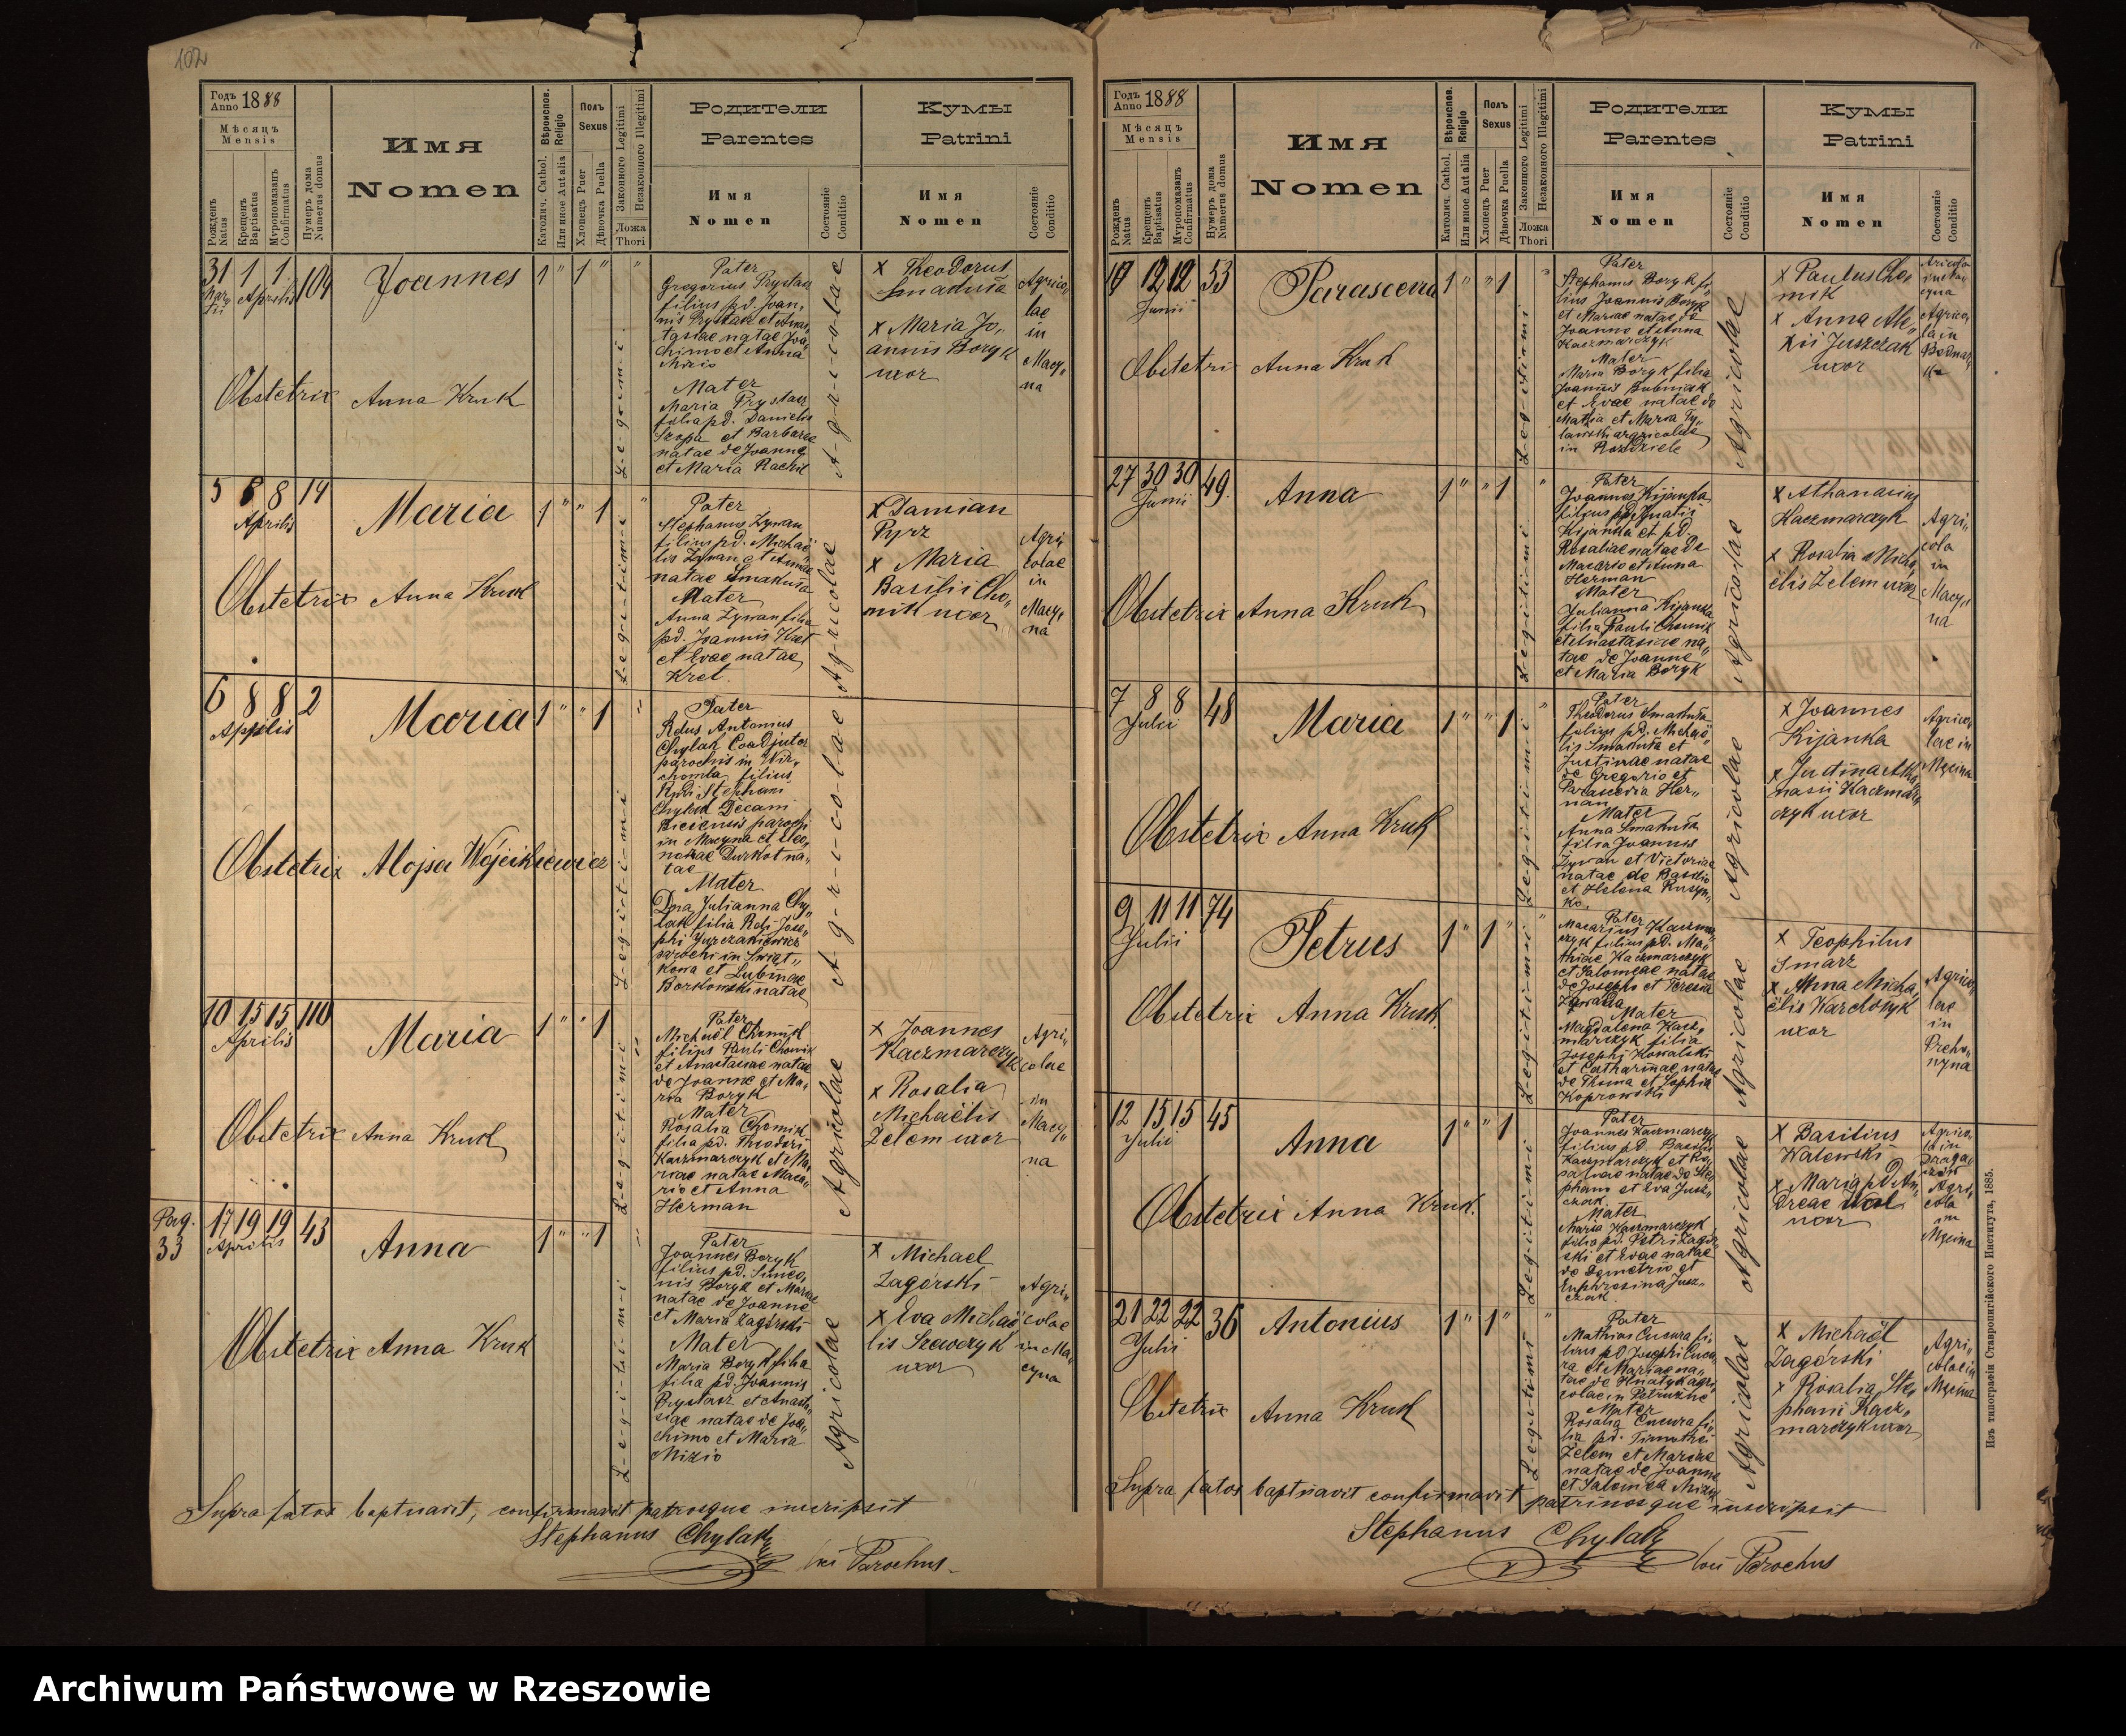 102
Годъ
Anno 1888
Мѣсяцъ
Mensis
Рожденъ
Natus
Крещенъ
Baptisatus
Мѵропомазанъ
Confirmatus
Нумеръ дома
Numerus domus
Имя
Nomen
Вѣроиспов.
Religio
Католич. Cathol.
Или иное Aut alia
Полъ
Sexus
Хлопецъ Puer
Дѣвочка Puella
Законного Legitimi
Незаконного Illegitimi
Ложа
Thori
Родители
Parentes
Имя
Nomen
Состояніе
Conditio
Кумы
Patrini
Имя
Nomen
Состояніе
Conditio
31 1 1 104
Aprilis
Joannes
1 " 1 " "
Legitimi
Pater
Gregorius Prystasz
filius pd. Joan„
nis Prystasz et Anas„
tasiae natae Joa„
chimo et Anna
Mizio
Mater
Maria Prystasz
filia pd. Danielis
Szopa et Barbarae
natae de Joanne
et Maria
Agricolae
x Theodorus
Smakuła
x Maria Jo„
annis Boryk
uxor
Agrico„
lae
in
Macy„
na
Obstetrix Anna Kruk
5 8 8 14
Aprilis
Maria
1 " " 1 "
Legitimi
Pater
Stephanus Zywan
filius pd. Michaë„
lis Zywan et Annae
natae Smakuła
Mater
Anna Zywan filia
pd. Joannis Kret
et Evae natae
Kret.
Agricolae
x Damian
Pyrz
x Maria
Basilii Cho„
mik uxor
Agri„
colae
in
Macy„
na
Obstetrix Anna Kruk
6 8 8 2
Aprilis
Maria
1 " " 1 "
Legitimi
Pater
Rdus Antonius
Chylak Coadjutor
parochis in Wir„
chomla filius
Rndi Stephani
Chylak Decani
Biecensis parochi
in Macyna et Eleo„
norae Durkot na„
tae
Mater
Dna Julianna Chy„
lak filia Rdi Jose„
phi Jurczakiewicz
parochi in Swiąt„
kowa et Lubinae
Borkowski natae
Agricolae
Obstetrix Alojsa Wojcikiewicz
10 15 15 110
Aprilis
Maria
1 " " 1 "
Legitimi
Pater
Michaël Chomik
filius Pauli Chomik
et Anastasiae natae
de Joanne et Ma„
ria Boryk
Mater
Rosalia Chomik
filia pd. Theodori
Kaczmarczyk et Ma„
riae natae Maca„
rio et Anna
Herman
Agricolae
x Joannes
Kaczmarczyk
x Rosalia
Michaëlis
Zelem uxor
Agri„
colae
in
Macy„
na
Obstetrix Anna Kruk
Pag.
33
17 19 19 43
Aprilis
Anna
1 " " 1 "
Legitimi
Pater
Joannes Boryk
filius pd. Simeo„
nis Boryk et Mariae
natae de Joanne
et Maria Zagórski
Mater
Maria Boryk filia
filia pd. Joannis
Prystasz et Anasta„
siae natae de Joa„
chimo et Maria
Mizio
Agricolae
x Michael
Zagórski
x Eva Michaë„
lis Szewczyk
uxor
Agri„
colae
in Ma„
cyna
Obstetrix Anna Kruk
Supra fatos baptisavit, confirmavit patrosque inscripsit
Stephanus Chylak
loci Parochus
Годъ
Anno 1888
Мѣсяцъ
Mensis
Рожденъ
Natus
Крещенъ
Baptisatus
Мѵропомазанъ
Confirmatus
Нумеръ дома
Numerus domus
Имя
Nomen
Вѣроиспов.
Religio
Католич. Cathol.
Или иное Aut alia
Полъ
Sexus
Хлопецъ Puer
Дѣвочка Puella
Законного Legitimi
Незаконного Illegitimi
Ложа
Thori
Родители
Parentes
Имя
Nomen
Состояніе
Conditio
Кумы
Patrini
Имя
Nomen
Состояніе
Conditio
12 12 53
Junii
Parascevia
1 " " 1 "
Legitimi
Pater
Stephanus Boryk fi„
lius Joannis Boryk
et Mariae natae de
Joanne et Anna
Kaczmarczyk
Mater
Maria Boryk filia
Joannis Bubniak
et Evae natae de
Mathia et Maria Ty„
lawski agricolae
in Rozdziele
Agricolae
x Paulus Cho„
mik
x Anna Ale„
xii Juszczak
uxor
Agricola
in Ma„
cyna
Agrico„
la in
Bednar„
ka
Obstetrix Anna Kruk
27 30 30 49
Junii
Anna
1 " " 1 "
Legitimi
Pater
Joannes Kijanka
filius pd. Ignatii
Kijanka et pd.
Rosaliae natae de
Macario et Anna
Herman
Mater
Julianna Kijanka
filia Pauli Chomik
et Anastasiae na„
tae de Joanne
et Maria Boryk
Agricolae
x Athanasius
Kaczmarczyk
x Rosalia Micha„
ëlis Zelem uxor
Agri„
cola
in
Macy„
na
Obstetrix Anna Kruk
7 8 8 48
Julii
Maria
1 " " 1 "
Legitimi
Pater
Theodorus Smakuła
filius pd. Michaë„
lis Smakuła et
Justinae natae
de Gregorio et
Parascevia Her„
man
Mater
Anna Smakuła
filia Joannis
Zywan et Victoriae
natae de Basilio
et Helena Rusyn„
ko.
Agricolae
x Joannes
Kijanka
x Justina Atha„
nasii Kaczmar„
czyk uxor
Agrico„
lae in
Męcina
Obstetrix Anna Kruk
9 11 11 74
Julii
Petrus
1 " 1 " "
Legitimi
Pater
Macarius Kaczmar„
czyk filius pd. Ma„
thiae Kaczmarczyk
et Salomeae natae
de Josepho et Teresia
Zawada
Mater
Magdalena Kacz„
marczyk filia
Josephi Kowalski
et Catharinae natae
de Thoma et Sophia
Koprowski
Agricolae
x Teophilus
Smarz
x Anna Micha„
ëlis Warchołyk
uxor
Agrico„
lae
in
Preho„
nyna
Obstetrix Anna Kruk.
12 15 15 45
Julii
Anna
1 " " 1
Legitimi
Pater
Joannes Kaczmarczyk
filius pd. Basilii
Kaczmarczyk et Ro„
saliae natae de Ste„
phano et Eva Jusz„
czak.
Mater
Maria Kaczmarczyk
filia pd. Petri Zagór„
ski et Evae natae
de Demetrio et
Euphrosina Jusz„
czak
Agricolae
x Basilius
Walewski
x Maria pd. An„
dreae Wal
uxor
Agrico„
la in
Agri„
cola
in
Męcina
Obstetrix Anna Kruk.
21 22 22 36
Julii
Antonius
1 " 1 " "
Legitimi
Pater
Mathias Cucura fi„
lius pd. Josephi Cucu„
ra et Mariae na„
tae de Hnatyk agri„
colae in Pętruzne
Mater
Rosalia Cucura fi„
lia pd. Timothei
Zelem et Mariae
natae de Joanne
et Salomea Mizio
Agricolae
x Michaël
Zagórski
x Rosalia Ste„
phani Kacz„
marczyk uxor
Agri„
colae in
Męcina
Obstetrix Anna Kruk
Supra fatos baptisavit confirmavit patrinosque inscripsit
Stephanus Chylak
loci Parochus
Изъ типографіи Ставропигійского Института, 1885.
Archiwum Państwowe w Rzeszowie